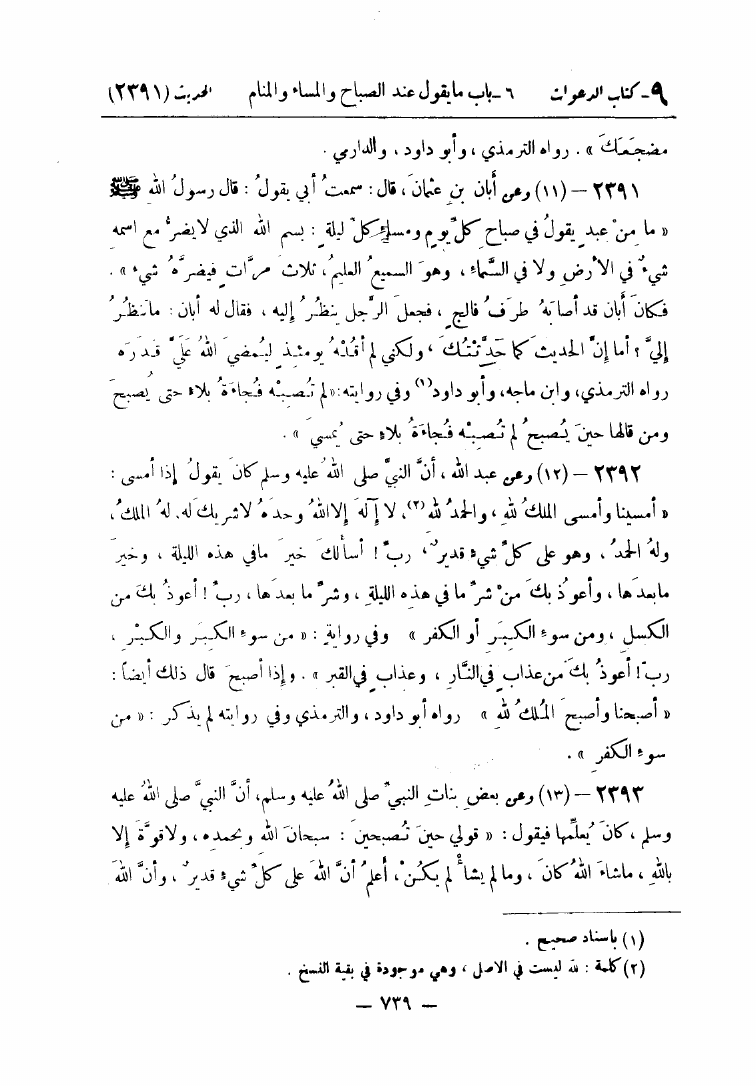 ٩- كتاب الدعوات ٦- باب ما يقول عند الصباح والمساء والمنام الحديث (٢٣٩١)
مضجَعَكَ » . رواه الترمذي ، وأبو داود ، والدارمي .
٢٣٩١ – (١١) وعن أَبان بنِ عثمانَ ، قال : سمعتُ أبي يقولُ : قال رسولُ اللهِ ﷺ
« ما مِنْ عبدٍ يقولُ في صباحِ كلِّ يومٍ ومساءِ كلِّ ليلةٍ : بسمِ اللهِ الذي لا يضرُّ مع اسمه
شيءٌ في الأرضِ ولا في السَّماءِ ، وهوَ السميعُ العليمُ ، ثلاثَ مرَّاتٍ فيضرَّهُ شيءٌ » .
فكانَ أَبان قد أصابَهُ طرَفُ فالجٍ ، فجعلَ الرَّجل ينظُرُ إليه ، فقال له أبان : ما تنظُرُ
إليَّ ؟ أما إنَّ الحديثَ كما حدَّثْتُكَ ، ولكني لم أقُلْهُ يومئذٍ ليُمضيَ اللهُ عليَّ قدَرَه
رواه الترمذي، وابن ماجه، وأبو داود(١) وفي روايته: «لم تُصبْه فُجاءَةُ بلاءٍ حتى يُصبحَ
ومن قالها حينَ يُصبحُ لم تُصبْه فُجاءَةُ بلاءٍ حتى يُمسيَ » .
٢٣٩٢ – (١٢) وعن عبد الله ، أنَّ النبيَّ صلى اللهُ عليه وسلم كانَ يقولُ إذا أمسى :
« أمسينا وأمسى الملكُ للهِ ، والحمدُ لله(٢)، لا إلٰهَ إلا اللهُ وحدَهُ لا شريكَ له. لهُ الملكُ ،
ولهُ الحمدُ ، وهو على كلِّ شيءٍ قديرٌ ، ربِّ ! أسألكَ خيرَ ما في هذه الليلة ، وخيرَ
ما بعدَها ، وأعوذُ بكَ منْ شرِّ ما في هذه الليلةِ ، وشرِّ ما بعدَها ، ربِّ ! أعوذُ بكَ من
الكسل ، ومن سوءِ الكِبَرِ أو الكفر » وفي روايةٍ : « من سوءِ الكِبَرِ والكِبْرِ ،
ربِّ ! أعوذُ بكَ من عذابٍ في النَّارِ ، وعذابٍ في القبر » . وإذا أصبحَ قال ذلكَ أيضاً :
« أصبحنا وأصبحَ المُلكُ للهِ » رواه أبو داود ، والترمذي وفي روايته لم يذكر : « من
سوءِ الكفرِ » .
٢٣٩٣ – (١٣) وعن بعضِ بناتِ النبيِّ صلى اللهُ عليه وسلم، أنَّ النبيَّ صلى اللهُ عليه
وسلم ، كانَ يُعلِّمها فيقول : « قولي حينَ تُصبحينَ : سبحانَ اللهِ وبحمده ، ولا قوَّةَ إلا
باللهِ ، ما شاءَ اللهُ كانَ ، وما لم يشأْ لم يكُنْ ، أعلمُ أنَّ اللهَ على كلِّ شيءٍ قديرٌ ، وأنَّ اللهَ
(١) بإسناد صحيح .
(٢) كلمة : لله ليست في الاصل ، وهي موجودة في بقية النسخ .
– ٧٣٩ –